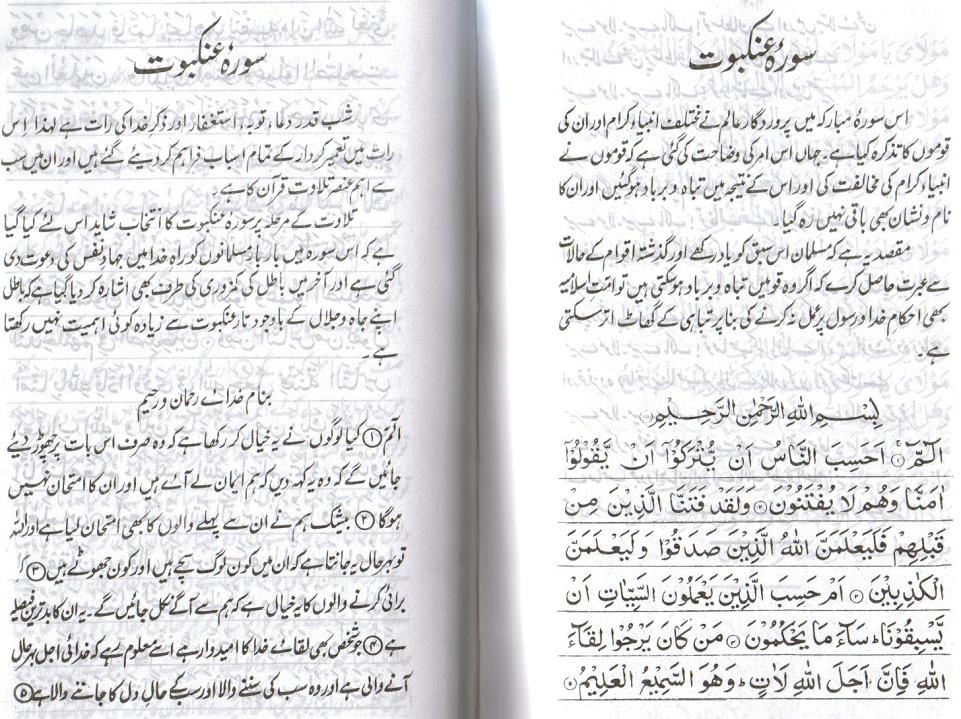 سورۂ عنکبوت
اس سورۂ مبارکہ میں پروردگار عالم نے مختلف انبیاء کرام اور ان کی
قوموں کا تذکرہ کیا ہے۔ جہاں اس امر کی وضاحت کی گئی ہے کہ قوموں نے
انبیاء کرام کی مخالفت کی اور اس کے نتیجہ میں تباہ و برباد ہوگئیں اور ان کا
نام و نشان بھی باقی نہیں رہ گیا۔
مقصد یہ ہے کہ مسلمان اس سبق کو یاد رکھے اور گذشتہ اقوام کے حالات
سے عبرت حاصل کرے کہ اگر وہ قومیں تباہ و برباد ہوسکتی ہیں تو امت اسلامیہ
بھی احکام خدا و رسول پر عمل نہ کرنے کی بنا پر تباہی کے گھاٹ اتر سکتی
ہے۔
بِسْمِ اللهِ الرَّحْمٰنِ الرَّحِيْمِ
الٓمّٓ ۚ﴿۱﴾ اَحَسِبَ النَّاسُ اَنْ يُّتْرَكُوْٓا اَنْ يَّقُوْلُوْٓا
اٰمَنَّا وَهُمْ لَا يُفْتَنُوْنَ ﴿۲﴾ وَلَقَدْ فَتَنَّا الَّذِيْنَ مِنْ
قَبْلِهِمْ فَلَيَعْلَمَنَّ اللهُ الَّذِيْنَ صَدَقُوْا وَلَيَعْلَمَنَّ
الْكٰذِبِيْنَ ﴿۳﴾ اَمْ حَسِبَ الَّذِيْنَ يَعْمَلُوْنَ السَّيِّاٰتِ اَنْ
يَّسْبِقُوْنَا ؕ سَآءَ مَا يَحْكُمُوْنَ ﴿۴﴾ مَنْ كَانَ يَرْجُوْا لِقَآءَ
اللهِ فَاِنَّ اَجَلَ اللهِ لَاٰتٍ ؕ وَهُوَ السَّمِيْعُ الْعَلِيْمُ ﴿۵﴾
سورۂ عنکبوت
شب قدر دعاء، توبہ، استغفار اور ذکر خدا کی رات ہے لہٰذا اس
رات میں تعمیر کردار کے تمام اسباب فراہم کر دیئے گئے ہیں اور ان میں سب
سے اہم عنصر تلاوت قرآن کا ہے۔
تلاوت کے مرحلہ پر سورۂ عنکبوت کا انتخاب شاید اس لئے کیا گیا
ہے کہ اس سورہ میں بار بار مسلمانوں کو راہ خدا میں جہاد نفس کی دعوت دی
گئی ہے اور آخر میں باطل کی کمزوری کی طرف بھی اشارہ کر دیا گیا ہے کہ باطل
اپنے جاہ و جلال کے باوجود تار عنکبوت سے زیادہ کوئی اہمیت نہیں رکھتا
ہے۔
بنام خدائے رحمان و رحیم
الٓمّ ﴿۱﴾ کیا لوگوں نے یہ خیال کر رکھا ہے کہ وہ صرف اس بات پر چھوڑ دیئے
جائیں گے کہ وہ یہ کہہ دیں کہ ہم ایمان لے آئے ہیں اور ان کا امتحان نہیں
ہوگا ﴿۲﴾ بیشک ہم نے ان سے پہلے والوں کا بھی امتحان لیا ہے اور اللہ
تو بہرحال یہ جانتا ہے کہ ان میں کون لوگ سچے ہیں اور کون جھوٹے ہیں ﴿۳﴾ کیا
برائی کرنے والوں کا یہ خیال ہے کہ ہم سے آگے نکل جائیں گے۔ یہ ان کا بدترین فیصلہ
ہے ﴿۴﴾ جو شخص بھی لقائے خدا کا امیدوار ہے اسے معلوم ہے کہ خدائی اجل بہر حال
آنے والی ہے اور وہ سب کی سننے والا اور سب کے حال دل کا جاننے والا ہے ﴿۵﴾